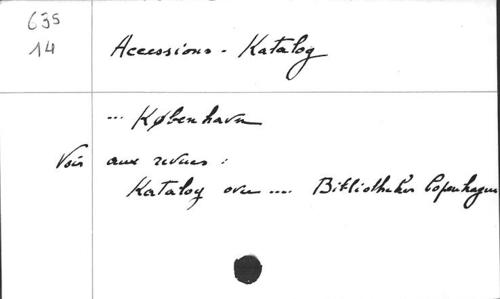 635
14
Accessions - Katalog
... København
Voir aux revues :
Katalog over .... Bibliotheker Copenhagen